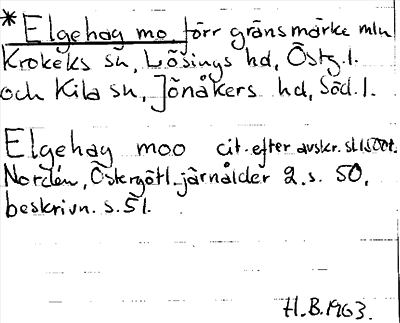 *Elgehag mo, förr gränsmärke mln
Krokeks sn, Lösings hd, Östg.l.
och Kila sn, Jönåkers hd, Söd.l.
Elgehag moo cit. efter avskr. sl.1500t.
Nordén, Östergötl. järnålder 2. s. 50,
beskrivn. s. 51.
H.B. 1963.